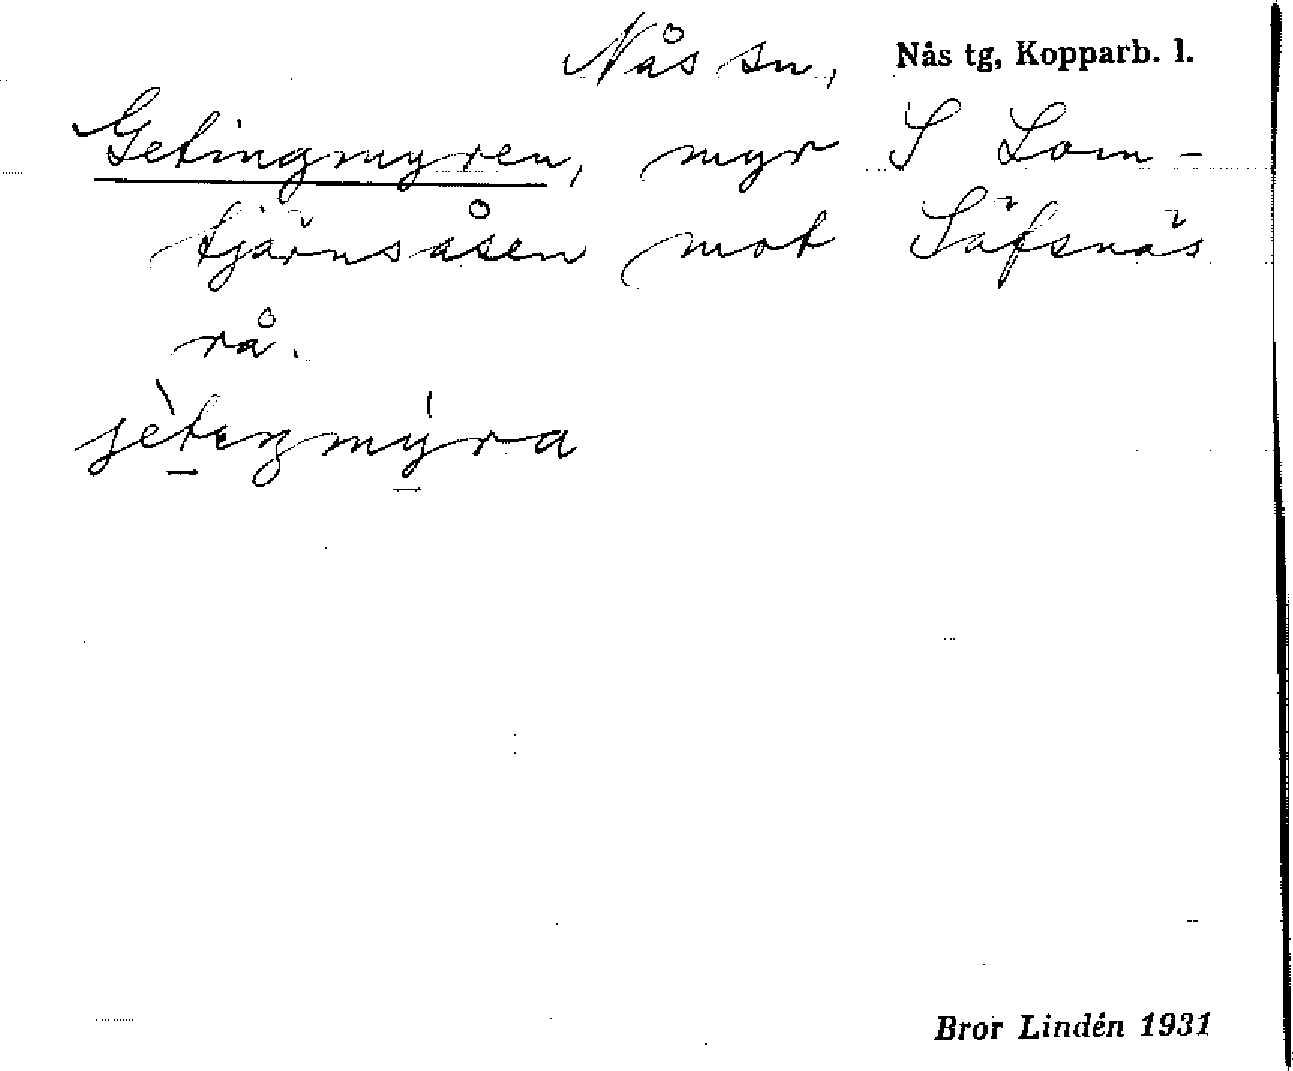 Nås sn, Nås tg, Kopparb. l.
Getingmyren, myr S Lom-
tjärnsåsen mot Säfsnäs
rå.
jètegmýra
Bror Lindén 1931